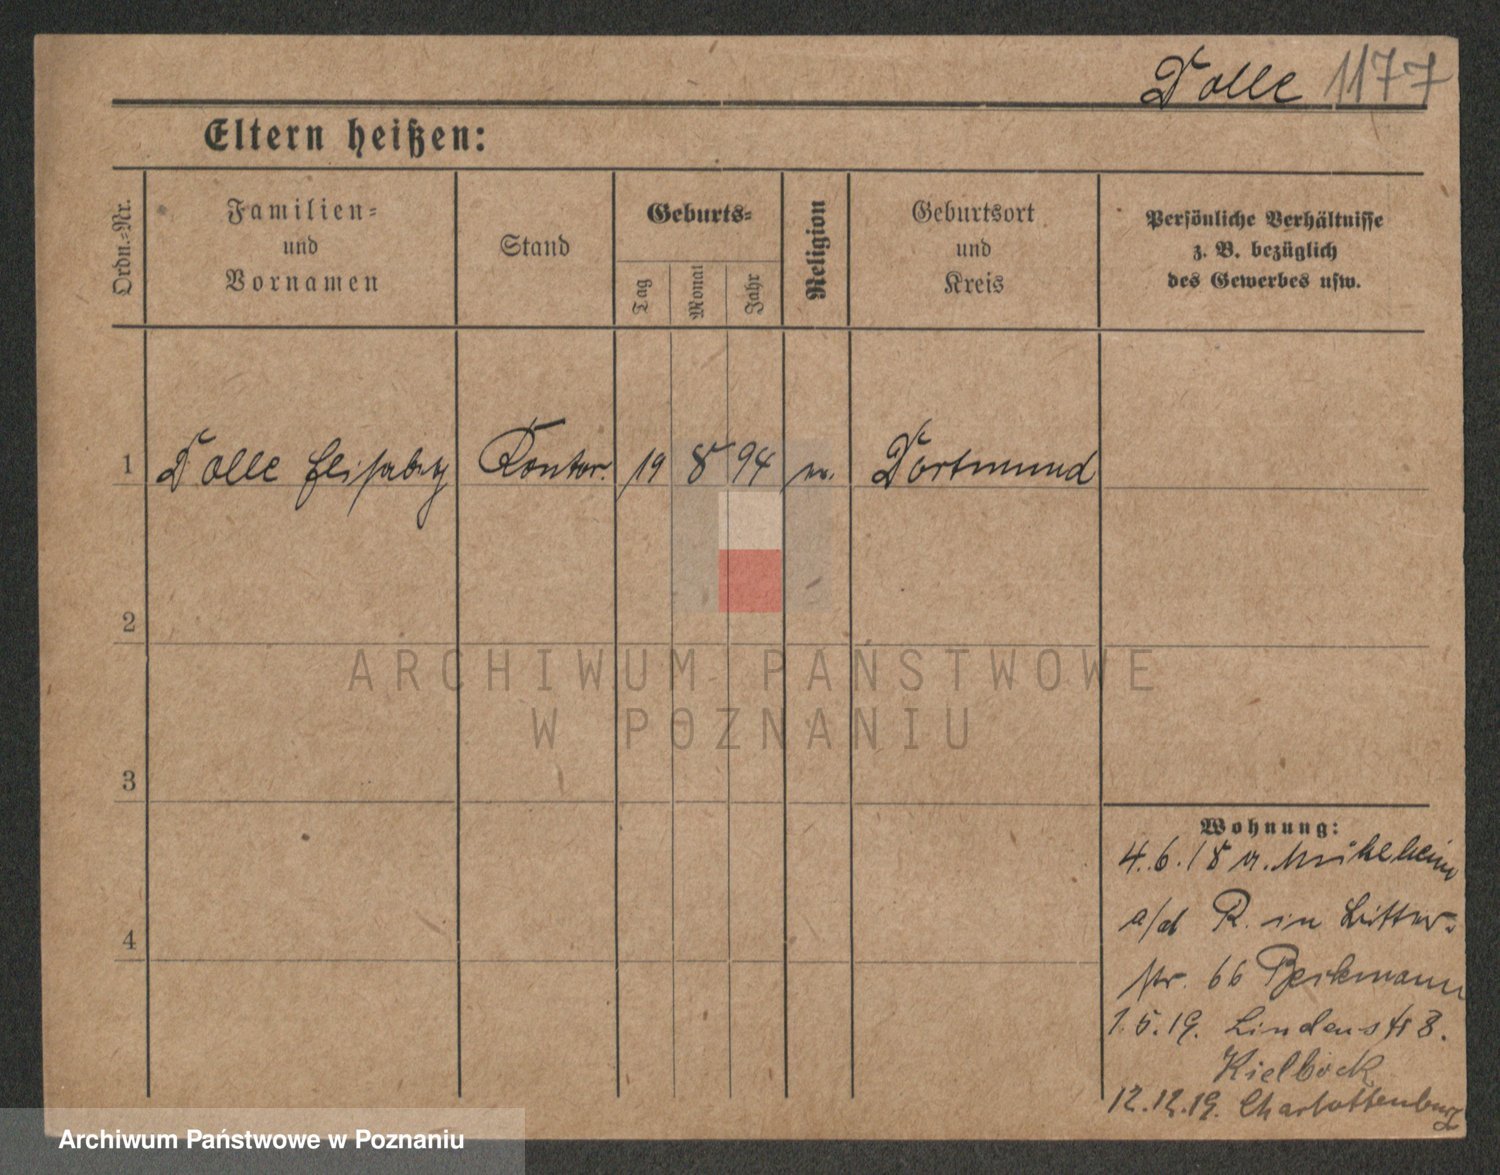 Dolle 1177
Eltern heißen:
Ordn.-Nr.
Familien-
und
Vornamen
Stand
Geburts-
Tag
Monat
Jahr
Religion
Geburtsort
und
Kreis
Persönliche Verhältnisse
z. B. bezüglich
des Gewerbes usw.
1 Dolle Elisabeth Kontor. 19 8 94 Dortmund
2
3
4
Wohnung:
4.6.18 v. Mülheim
a/d R. in Ritter-
str. 66
1.5.19. Lindenstr 8.
Kielbock
12.12.19. Charlottenburg
ARCHIWUM PAŃSTWOWE
W POZNANIU
Archiwum Państwowe w Poznaniu